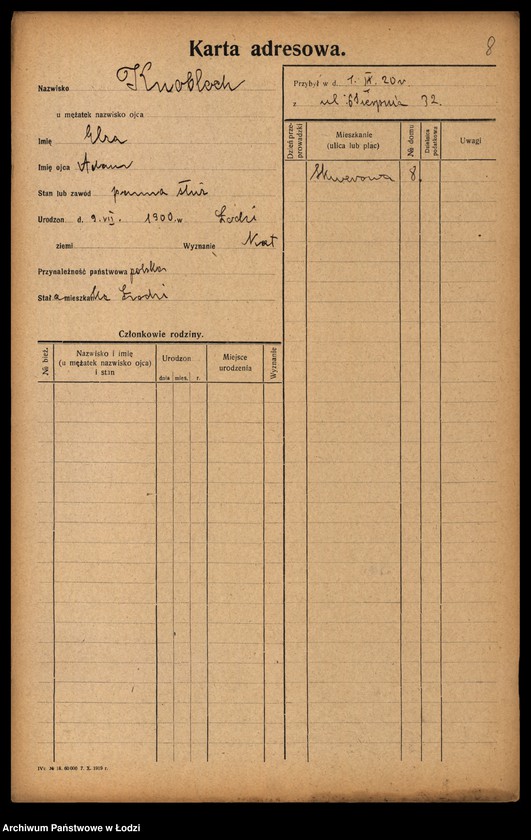 Karta adresowa.
8
Nazwisko Knobloch
u mężatek nazwisko ojca
Imię Elza
Imię ojca Adam
Stan lub zawód panna
Urodzon d. 9. VII. 1900. w Łodzi
ziemi Wyznanie
Przynależność państwowa polska
Stał. mieszka Łodzi
Członkowie rodziny.
№ bież.
Nazwisko i imię
(u mężatek nazwisko ojca)
i stan
Urodzon
dnia mies. r.
Miejsce
urodzenia
Wyznanie
Przybył w d. 1. IX. 20 r
z ul. 6 Sierpnia 32.
Dzień prze-
prowadzki
Mieszkanie
(ulica lub plac)
№ domu
Dzielnica
podatkowa
Uwagi
Skwerowa 8.
IVz. № 18. 60.000 7. X. 1919 r.
Archiwum Państwowe w Łodzi